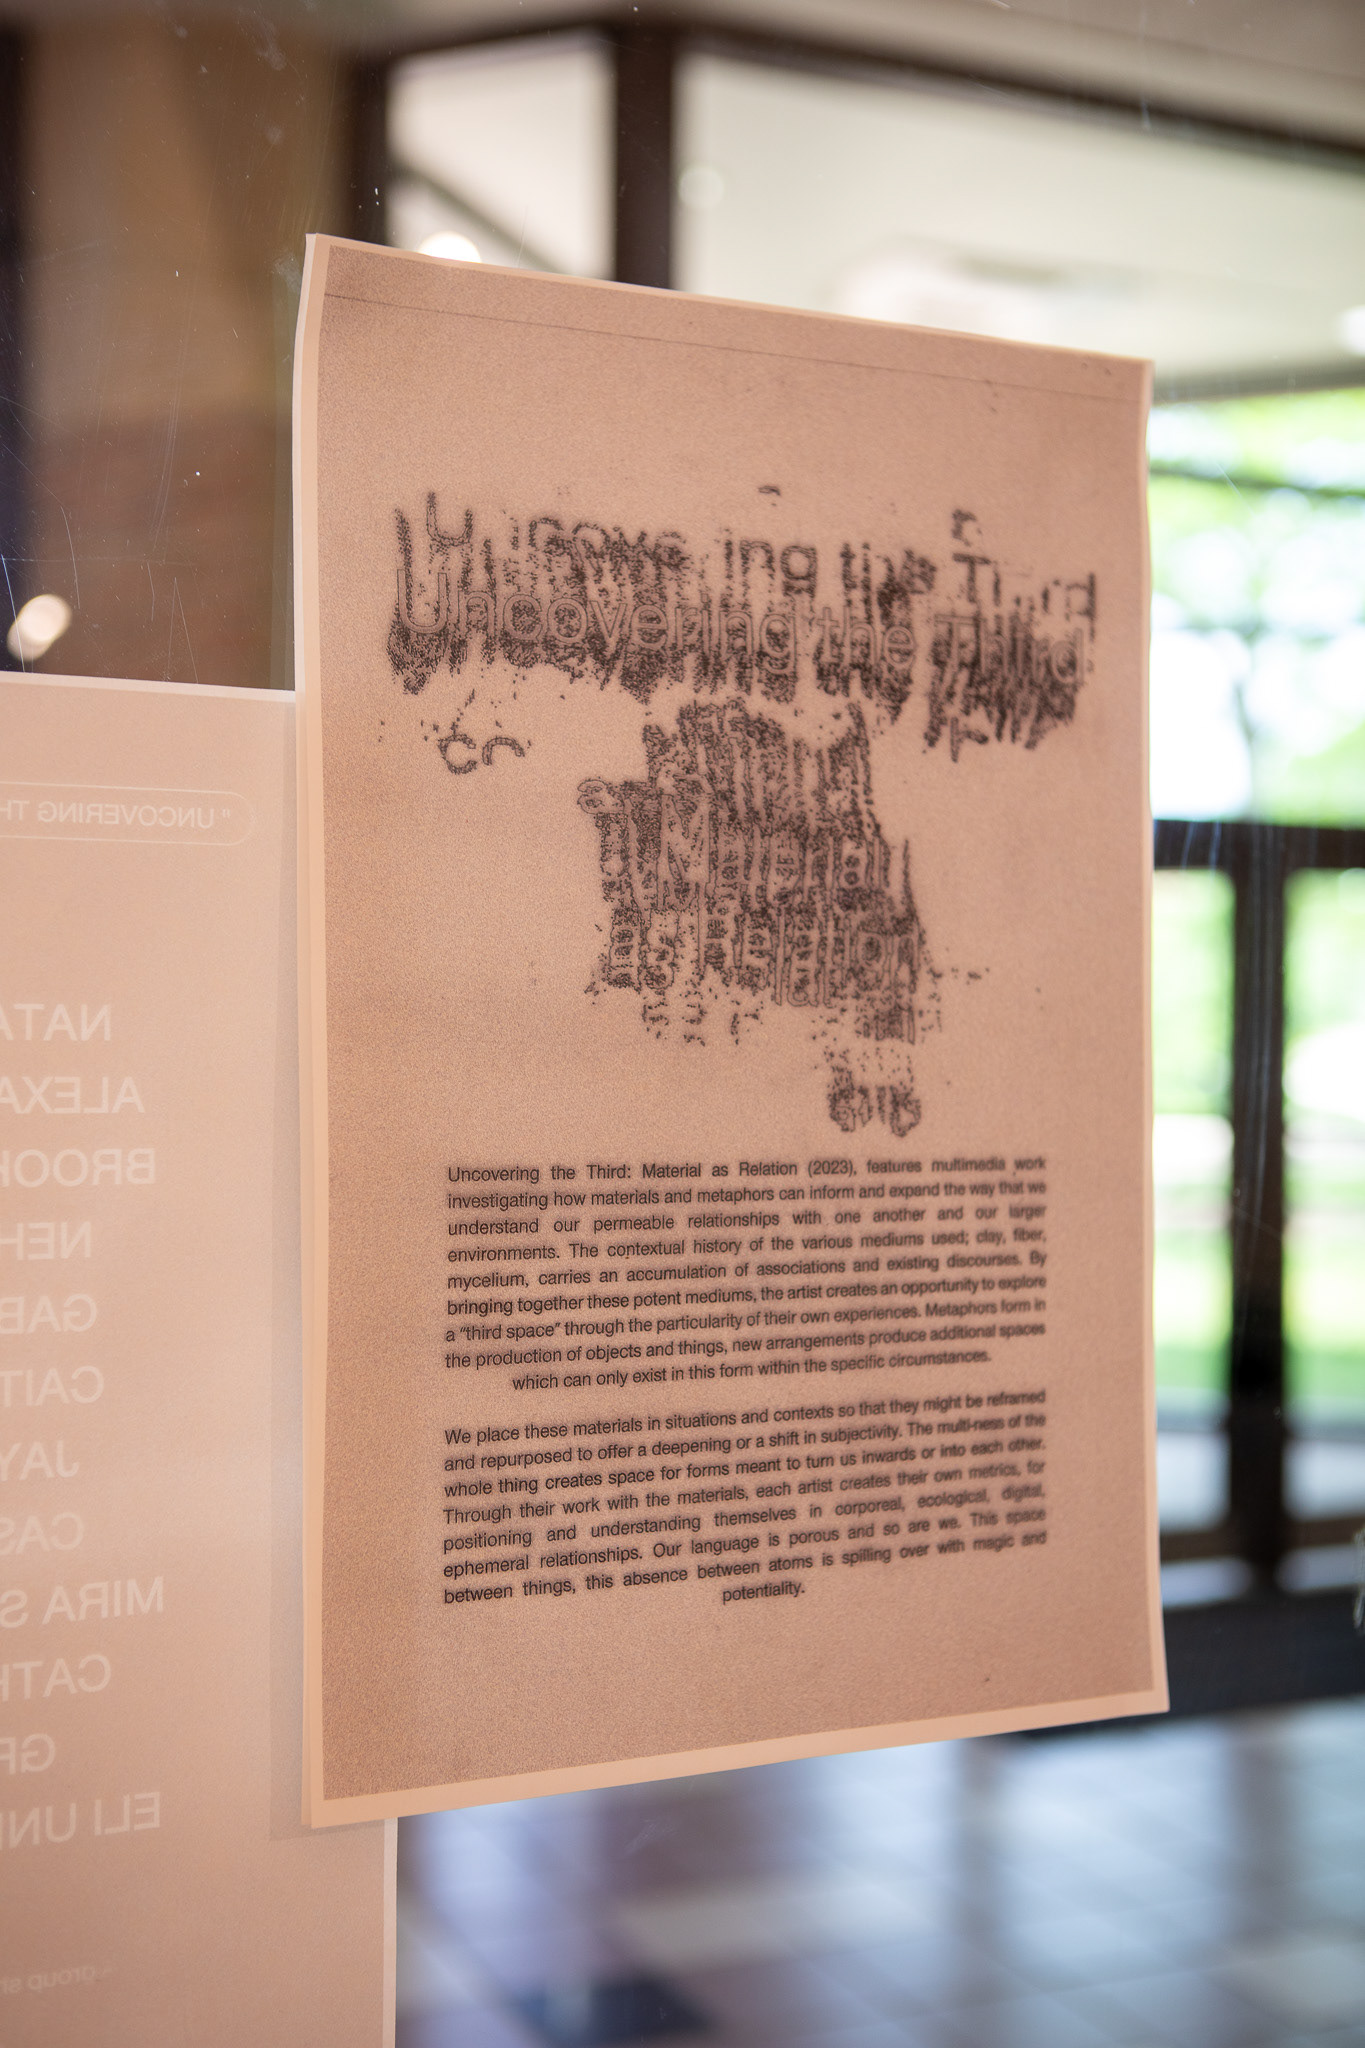 Uncovering the Third
Material
as Relation
Uncovering the Third: Material as Relation (2023), features multimedia work
investigating how materials and metaphors can inform and expand the way that we
understand our permeable relationships with one another and our larger
environments. The contextual history of the various mediums used; clay, fiber,
mycelium, carries an accumulation of associations and existing discourses. By
bringing together these potent mediums, the artist creates an opportunity to explore
a "third space" through the particularity of their own experiences. Metaphors form in
the production of objects and things, new arrangements produce additional spaces
which can only exist in this form within the specific circumstances.
We place these materials in situations and contexts so that they might be reframed
and repurposed to offer a deepening or a shift in subjectivity. The multi-ness of the
whole thing creates space for forms meant to turn us inwards or into each other.
Through their work with the materials, each artist creates their own metrics, for
positioning and understanding themselves in corporeal, ecological, digital,
ephemeral relationships. Our language is porous and so are we. This space
between things, this absence between atoms is spilling over with magic and
potentiality.
"UNCOVERING TH
NATA
ALEXA
BROOK
NEH
GAB
CAIT
JAY
CAS
MIRA S
CATH
GR
ELI UN
group s